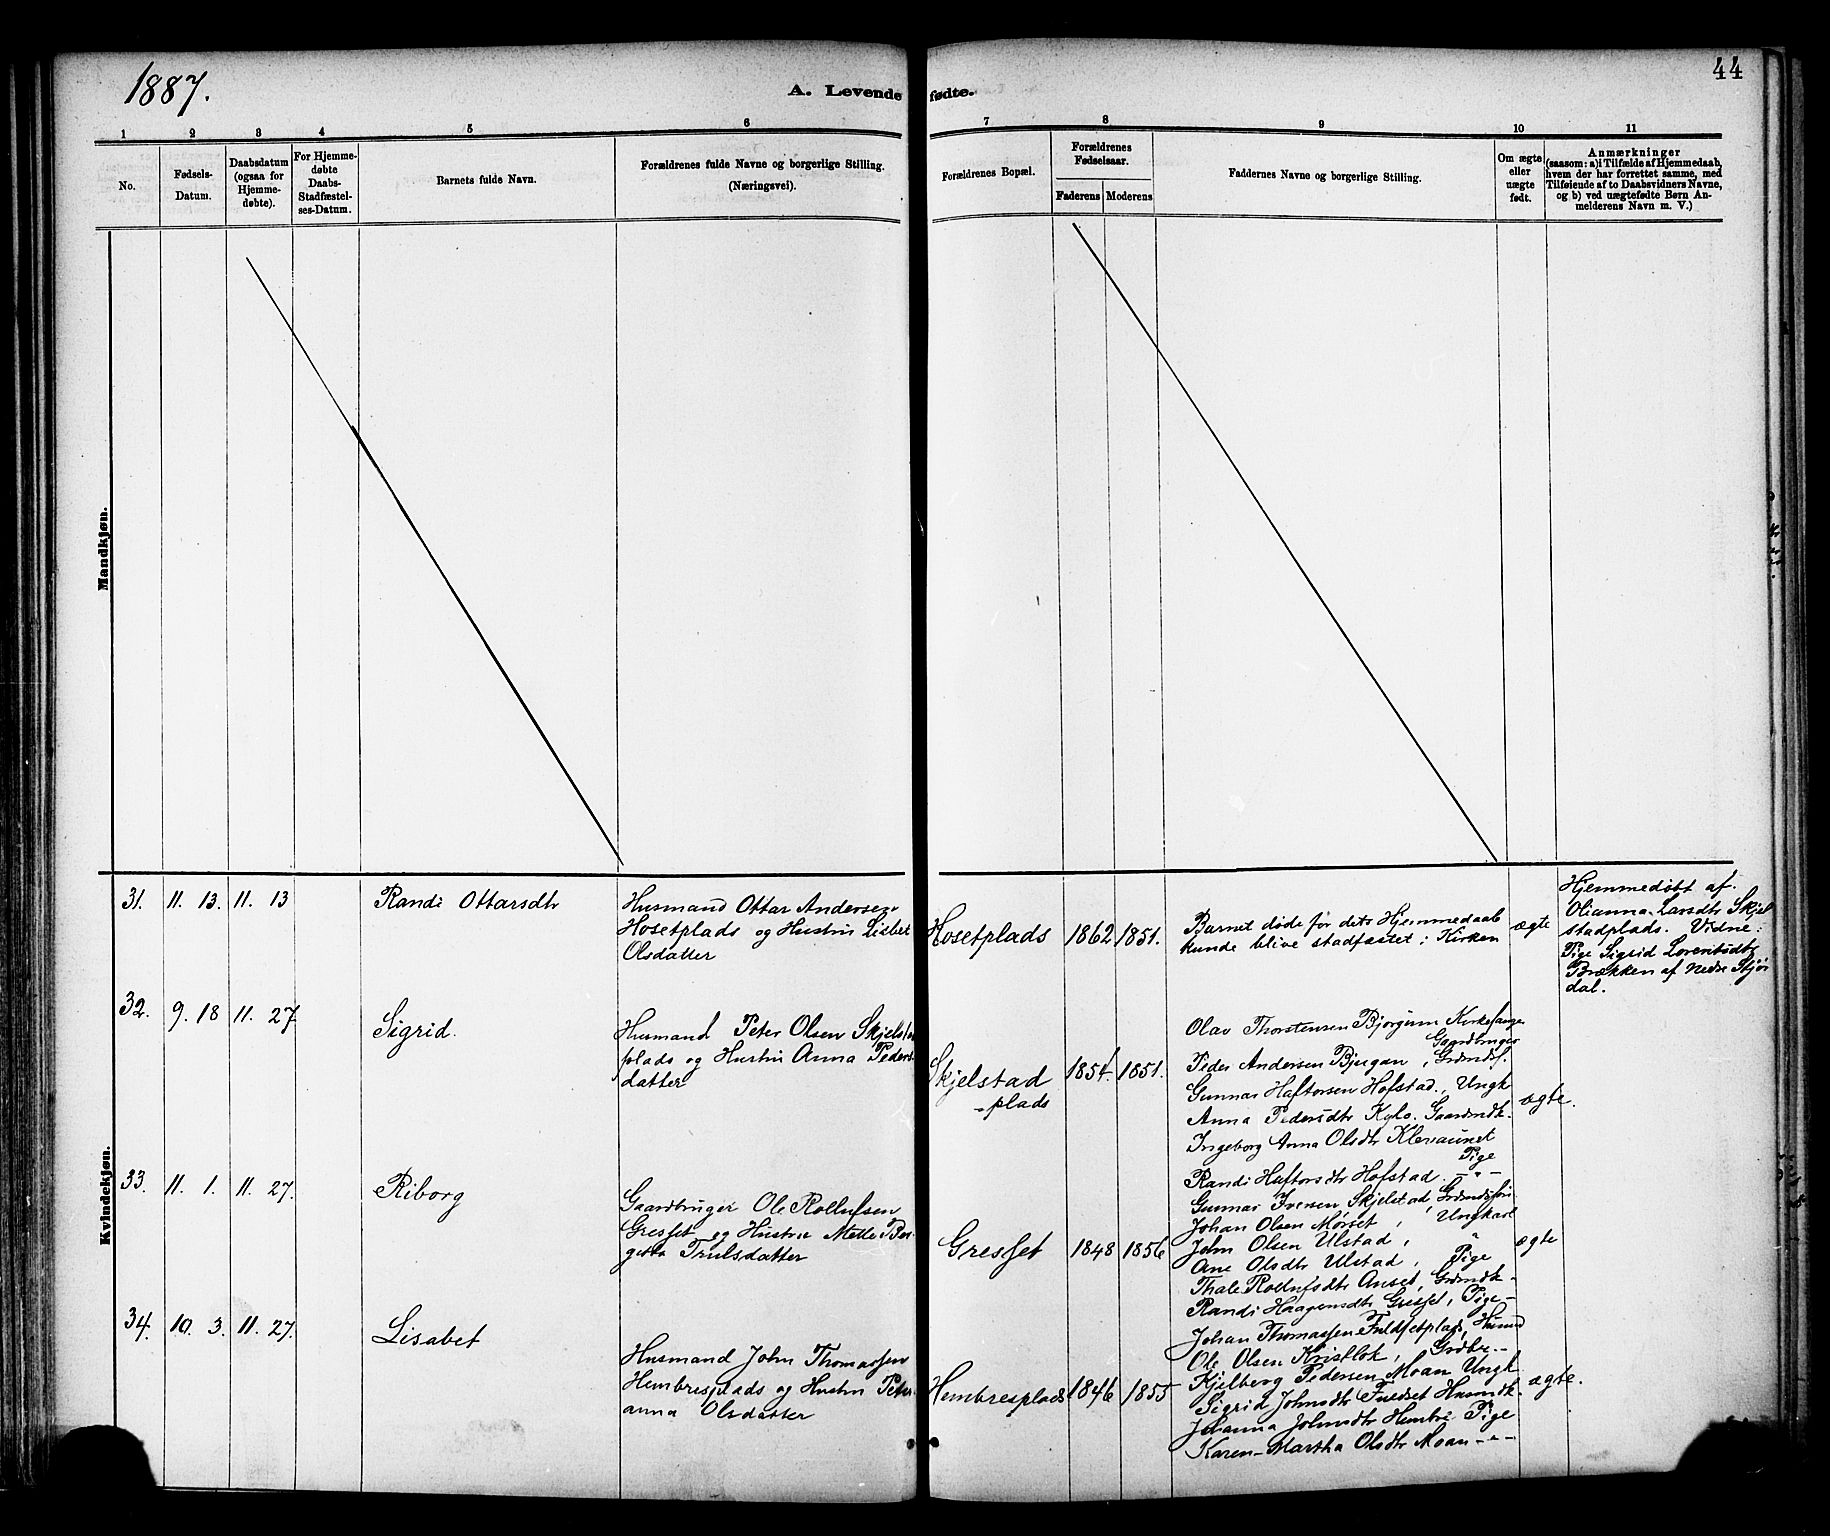 1887.
A. Levende
fødte.
44
1
2
3
4
5
6
7
8
9
10
11
No.
Fødsels-
Datum.
Daabsdatum
(ogsaa for
Hjemme-
døbte).
For Hjemme-
døbte
Daabs-
Stadfæstel-
ses-Datum.
Barnets fulde Navn.
Forældrenes fulde Navne og borgerlige Stilling.
(Næringsvei).
Forældrenes Bopæl.
Forældrenes
Fødselsaar.
Faderens
Moderens
Faddernes Navne og borgerlige Stilling.
Om ægte
eller
uægte
født.
Anmærkninger
(saasom: a) i Tilfælde af Hjemmedaab,
hvem der har forrettet samme, med
Tilføiende af to Daabsvidners Navne,
og b) ved uægtefødte Børn An-
melderens Navn m. V.)
Mandkjøn.
Kvindekjøn.
31. 11. 13. 11. 13
Randi Ottarsdtr
Husmand Ottar Andersen
Hosetplads og Hustru Lisbet
Olsdatter
Hosetplads
1862 1851.
Barnet døde før dets Hjemmedaab
kunde blive stadfæstet i Kirken
ægte
Hjemmedøbt af
Olianna Larsdtr Skjel
stadplads. Vidne:
Pige Sigrid Lorentsdtr
Brækken af Nedre Stjør
dal.
32. 9. 18 11. 27.
Sigrid.
Husmand Peter Olsen Skjelstad
plads og Hustru Anna Peders
datter
Skjelstad
-plads
1854. 1851.
Olav Thorstensen Bjorgum Kirkesanger
Gaardbruger
Peder Andersen Bjugan, Grdmdsf.
Gunnar Haftorsen Hofstad, Ungk
Anna Pedersdtr Kylo. Gaardmdk.
Ingeborg Anna Olsdtr Klevaunet
Pige
Randi Haftorsdtr Hofstad. - " -
ægte.
33. 11. 1. 11. 27.
Riborg
Gaardbruger Ole Rollufsen
Gresset og Hustru Mette Ber
gitta Trulsdatter
Gresset
1848 1856
Gunnar Iversen Skjelstad, Grdmdsfør
Johan Olsen Mørset, Ungkarl
John Olsen Ulstad, "
Ane Olsdtr Ulstad, Pige
Thale Rollufsdtr Auset, Grdmdk.
Randi Haagensdtr Gresset, Pige -
ægte
34. 10. 3. 11. 27.
Lisabet
Husmand John Thomassen
Hembresplads og Hustru Peter
anna Olsdatter
Hembresplads
1846 1855
Johan Thomassen Fuldsetplads, Husmd
Ole Olsen Kristlok, Grdbr.
Kjelberg Pedersen Moan Ungk.
Sigrid Johnsdtr Fuldset Husmdk.
Johanna Johnsdtr Hembre Pige
Karen-Martha Olsdtr Moan - " -
ægte.